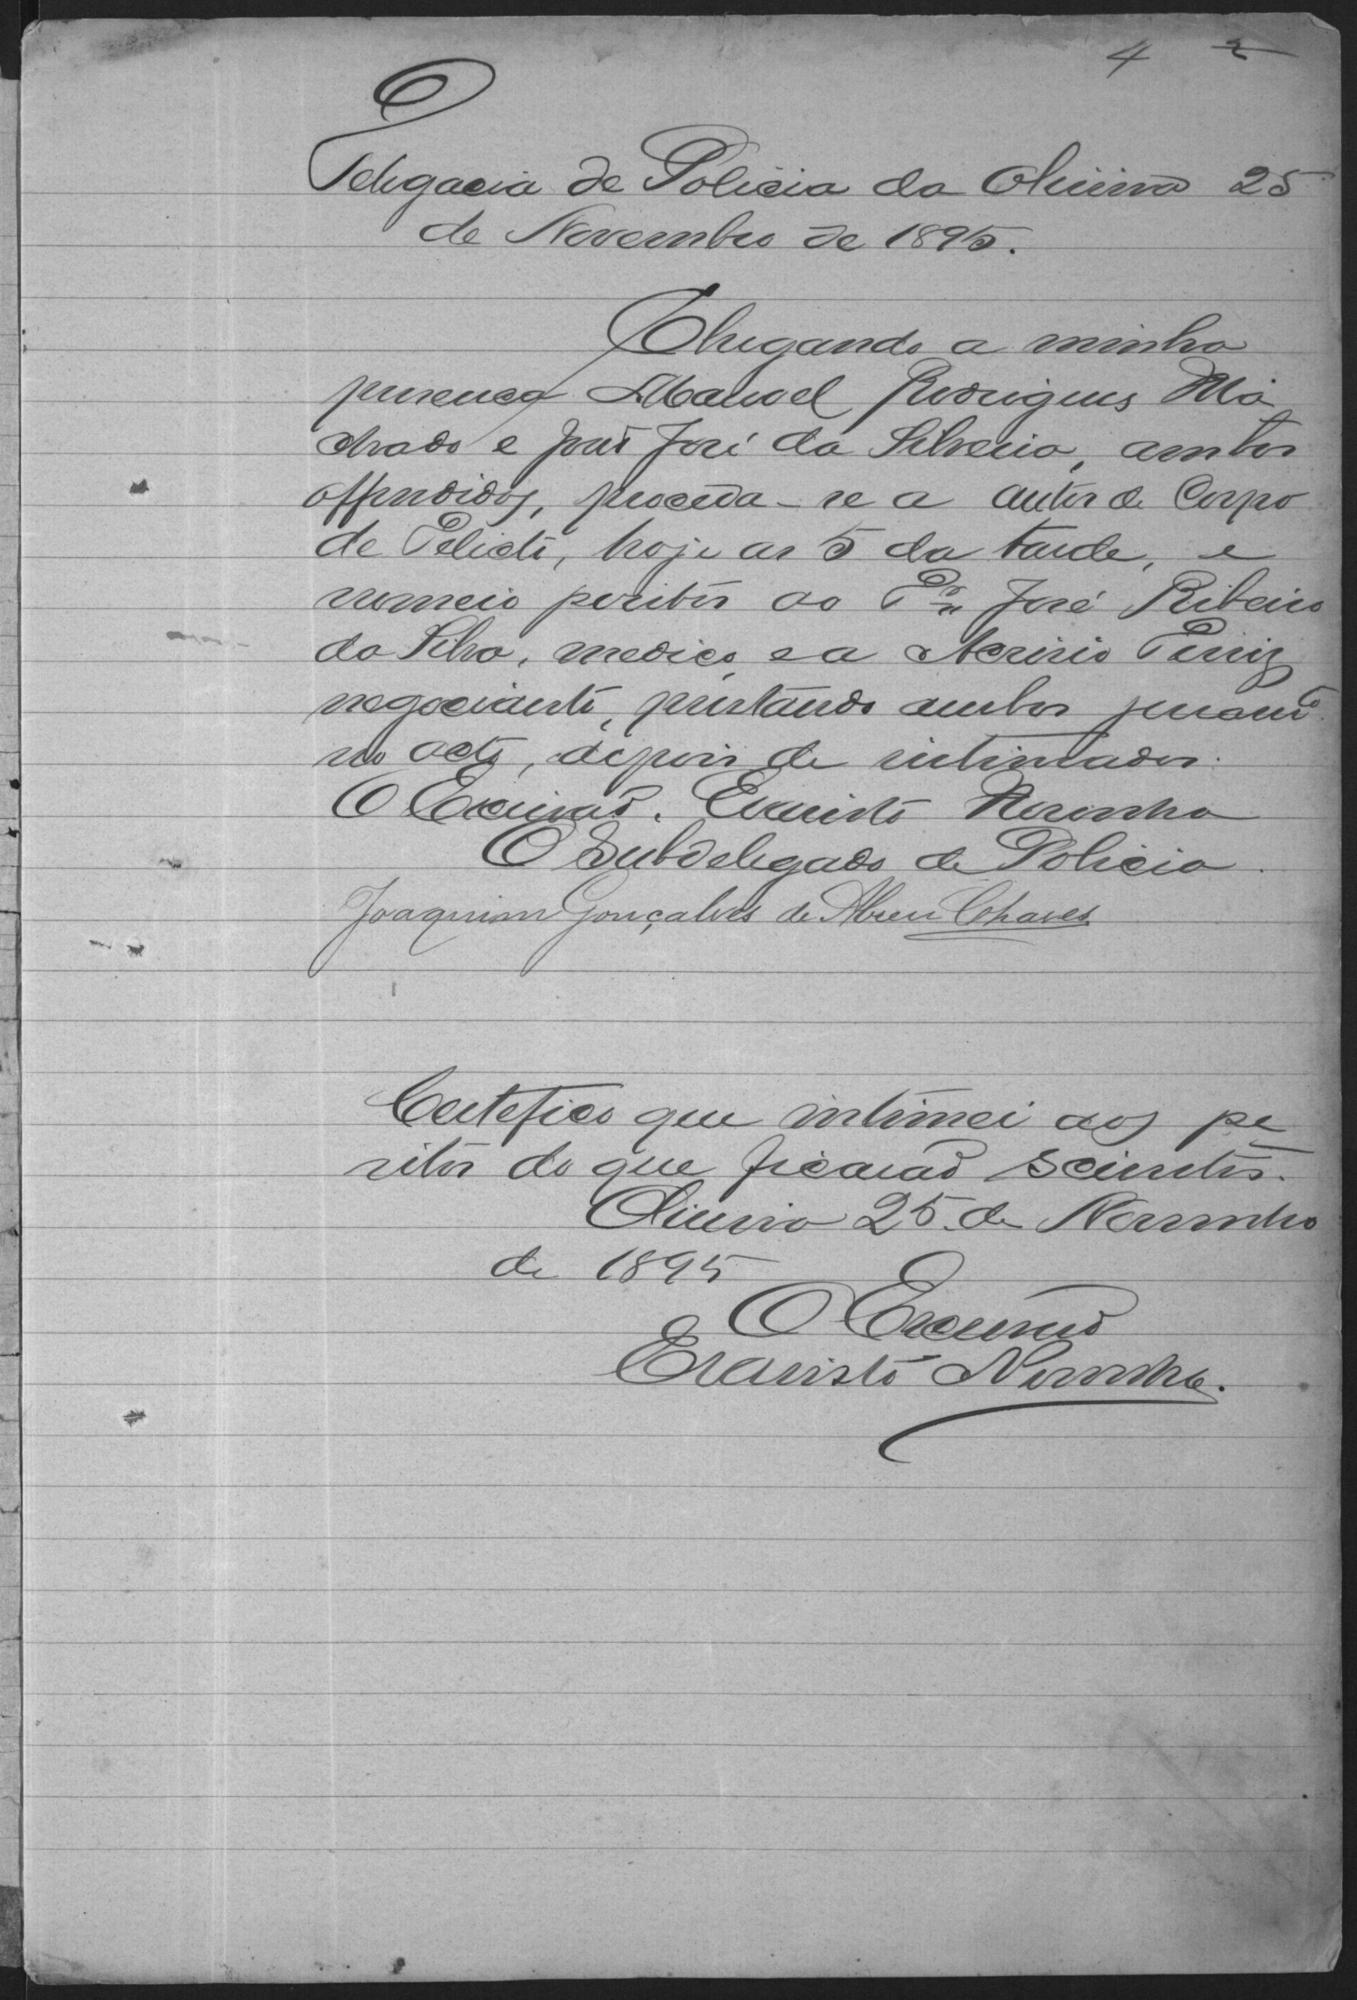 4 2
Delegacia de Policia da Oliveira 25
de Novembro de 1895.
Chegando a minha
presença Manoel Rodrigues Ma
chado e João José da Silveira, ambos
offendidos, proceda-se a autos de Corpo
de Delicto, hoje as 5 da tarde, e
nomeio peritos ao Dr José Ribeiro
da Silva, medico, e a Acrisio Diniz
negociante, prestando ambos juramto
no acto, depois de intimados.
O Escrivão. Evaristo Noronha
O Subdelegado de Policia
Joaquim Gonçalves de Abreu Chaves
Certefico que intimei aos pe
ritos do que ficarão scientes.
Oliveira 25 de Novembro
de 1895
O Escrivão
Evaristo Noronha.